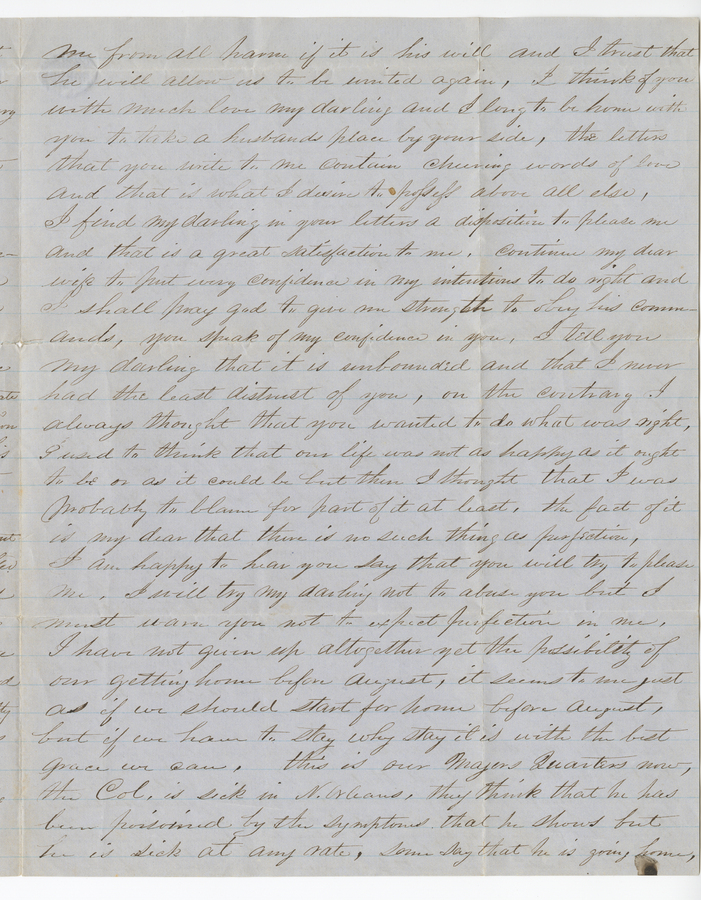 me from all harm if it is his will and I trust that
he will allow us to be united again, I think of you
with much love my darling and I long to be home with
you to take a husbands place by your side, the letters
that you write to me contain cheering words of love
and that is what I desire to possess above all else,
I find my darling in your letters a disposition to please me
and that is a great satisfaction to me. Continue my dear
wife to put every confidence in my intentions to do right and
I shall pray god to give me strength to obey his comm-
ands, you speak of my confidence in you, I tell you
my darling that it is unbounded and that I never
had the least distrust of you, on the contrary I
always thought that you wanted to do what was right,
I used to think that our life was not as happy as it ought
to be or as it could be but then I thought that I was
probably to blame for part of it at least. the fact of it
is my dear that there is no such thing as perfection,
I am happy to hear you say that you will try to please
me. I will try my darling not to abuse you but I
must warn you not to expect perfection in me.
I have not given up altogether yet the possibility of
our getting home before August, it seems to me just
as if we should start for home before august,
but if we have to stay why stay it is with the best
grace we can. this is our Majors Quarters now,
the Col. is sick in N. Orleans, they think that he has
been poisoned by the symptoms that he shows but
he is sick at any rate, some say that he is going home,